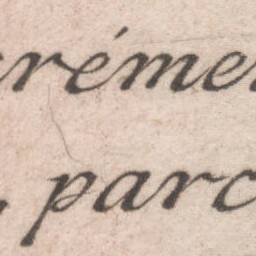 crémen
, parc